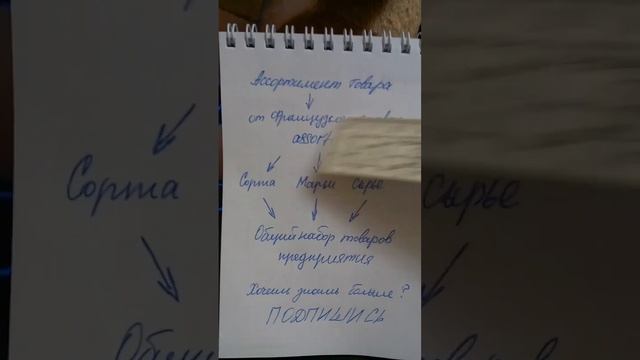 Ассортимент товара
от французского
Сорта Марки Сырье
Общий набор товаров
предприятия
Хочешь знать больше?
ПОДПИШИСЬ